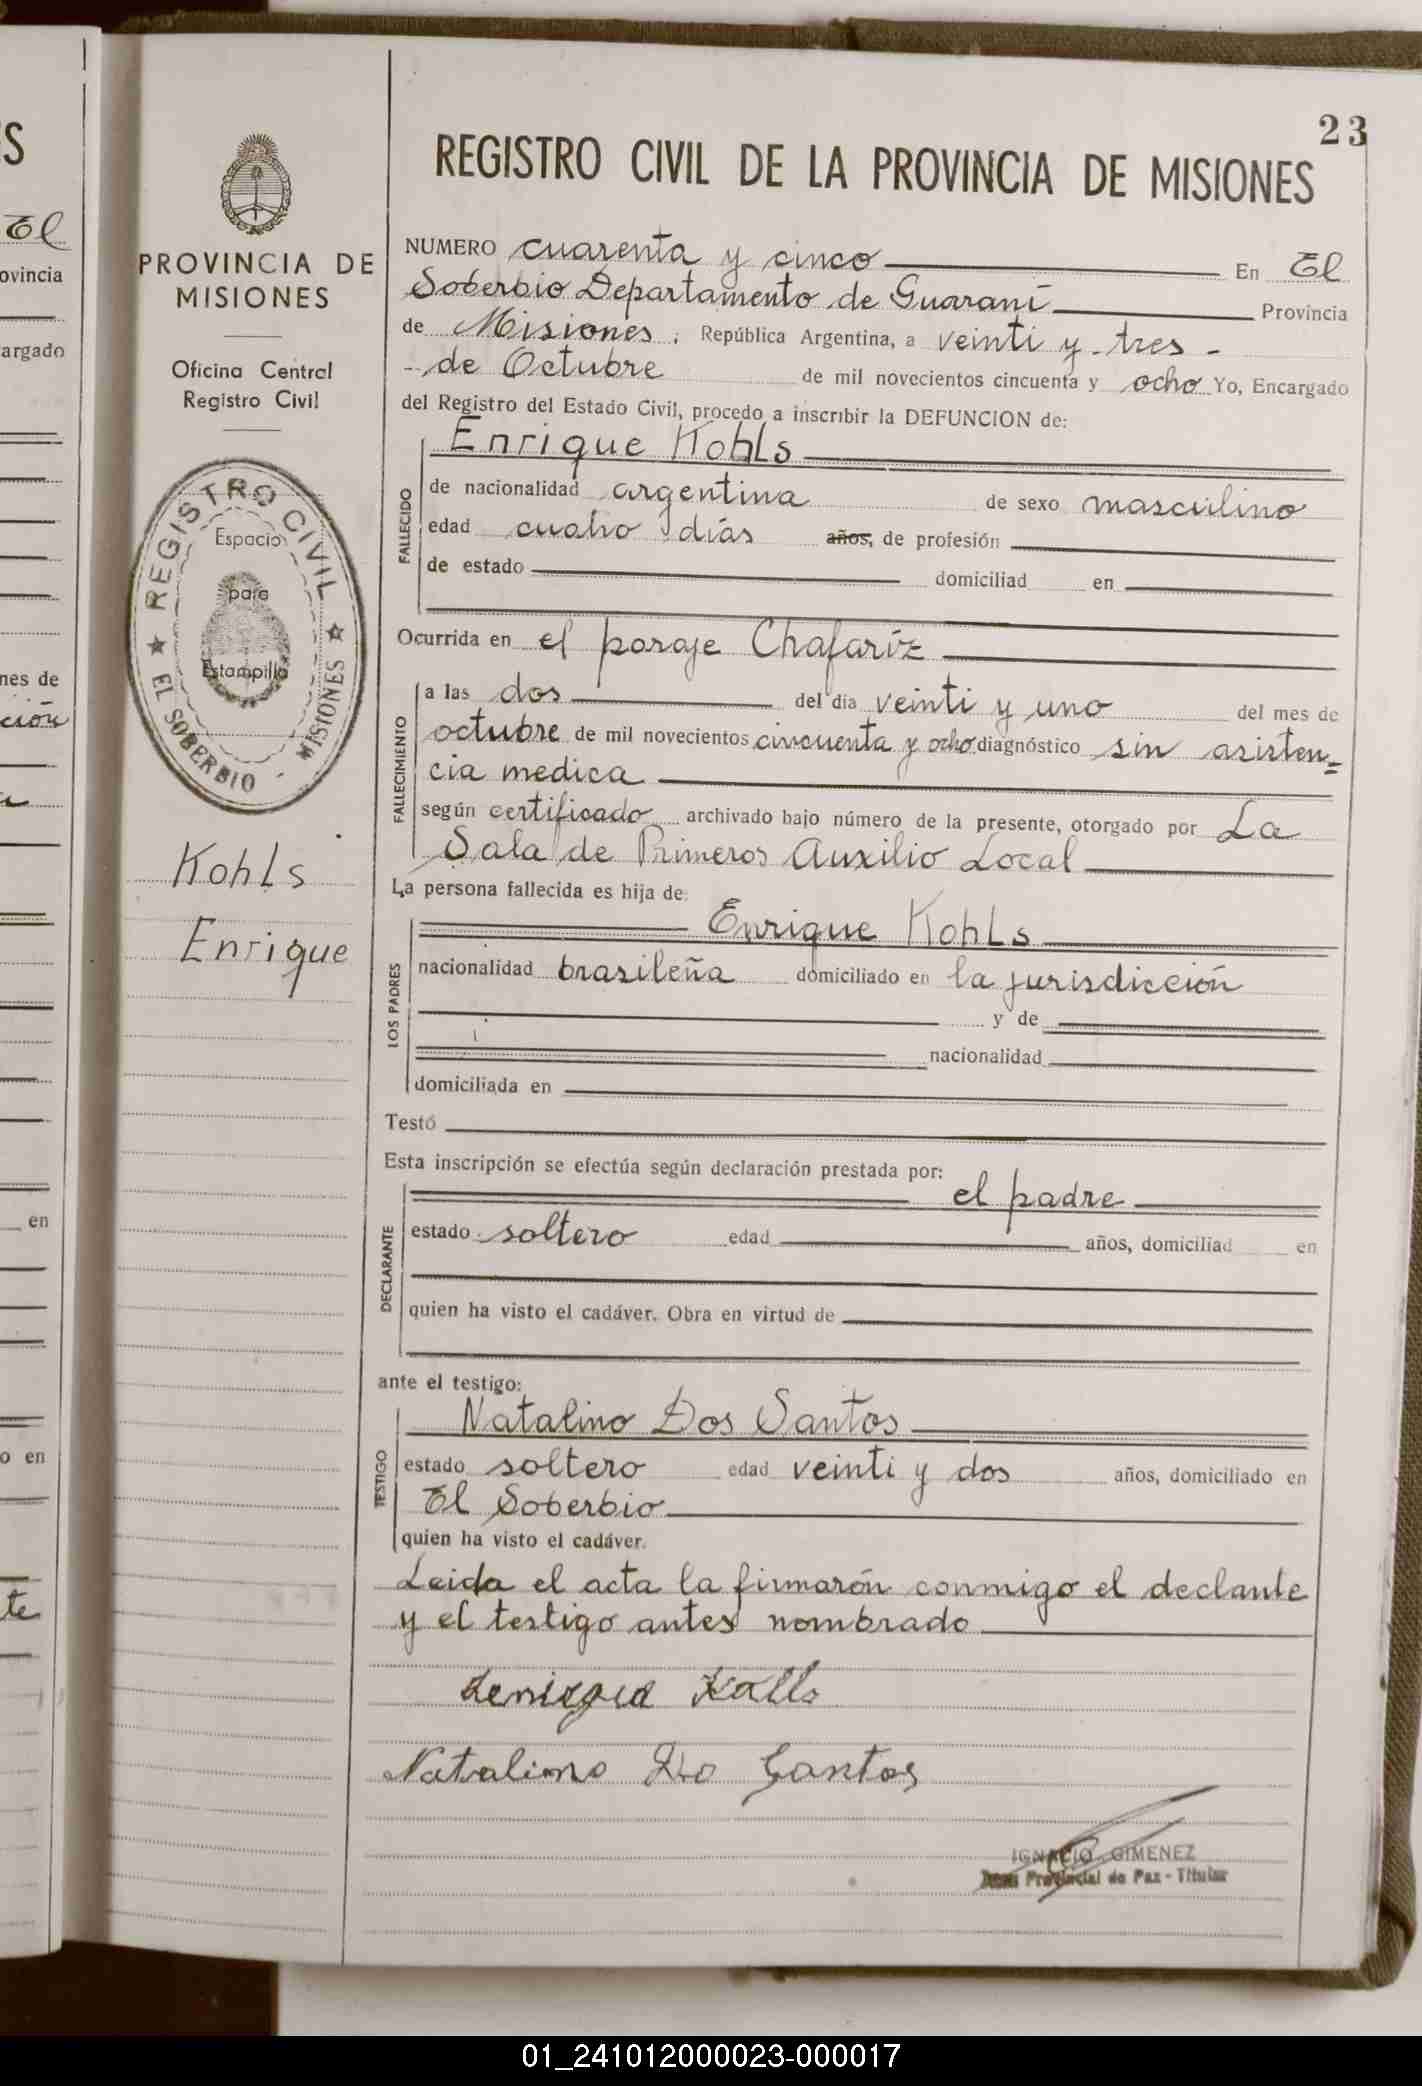 23
REGISTRO CIVIL DE LA PROVINCIA DE MISIONES
PROVINCIA DE
MISIONES
Oficina Central
Registro Civil
REGISTRO CIVIL
EL SOBERBIO MISIONES
Espacio
para
Estampilla
Kohls
Enrique
NUMERO cuarenta y cinco En El
Soberbio Departamento de Guaraní Provincia
de Misiones, República Argentina, a veinti y tres
de Octubre de mil novecientos cincuenta y ocho Yo, Encargado
del Registro del Estado Civil, procedo a inscribir la DEFUNCION de:
Enrique Kohls
FALLECIDO
de nacionalidad argentina de sexo masculino
edad cuatro días años, de profesión
de estado domiciliad en
Ocurrida en el paraje Chafariz
FALLECIMIENTO
a las dos del día veinti y uno del mes de
octubre de mil novecientos cincuenta y ocho diagnóstico sin asisten=
cia medica
según certificado archivado bajo número de la presente, otorgado por La
Sala de Primeros Auxilio Local
La persona fallecida es hija de:
LOS PADRES
Enrique Kohls
nacionalidad brasileña domiciliado en la jurisdicción
y de
nacionalidad
domiciliada en
Testó
Esta inscripción se efectúa según declaración prestada por:
DECLARANTE
el padre
estado soltero edad años, domiciliad en
quien ha visto el cadáver. Obra en virtud de
ante el testigo:
TESTIGO
Natalino Dos Santos
estado soltero edad veinti y dos años, domiciliado en
El Soberbio
quien ha visto el cadáver.
Leida el acta la firmarón conmigo el declante
y el testigo antes nombrado
Natalino Do Santos
IGNACIO GIMENEZ
Provincial de Paz - Titular
S
El
ovincia
argado
nes de
ción
en
o en
te
01_241012000023-000017